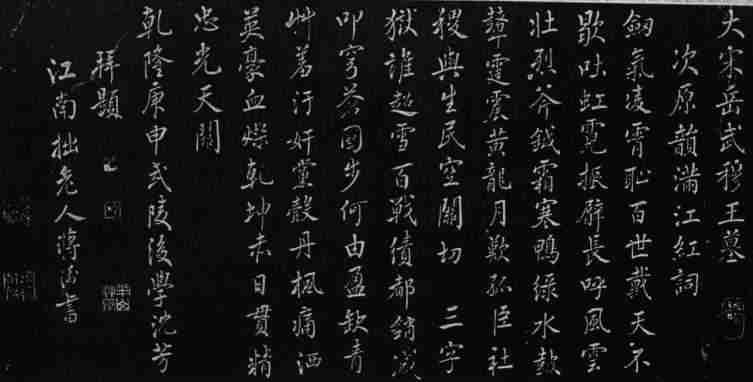 大宋岳武穆王墓
次原韻滿江紅詞
劒氣凌霄恥百世戴天不
歇吐虹霓振臂長呼風雲
壯烈斧鉞霜寒鴨綠水鼓
鼙霆震黃龍月歎孤臣社
稷與生民空關切 三字
獄誰超雪百戰績都銷滅
叩穹蒼國步何由盈缺青
艸羞汙奸黨殼丹楓痛洒
英豪血爍乾坤赤日貫精
忠光天闕
乾隆庚申武陵後學沈芳
拜題
江南拙老人蔣衡書